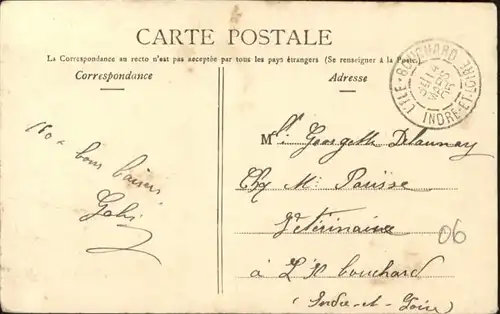 CARTE POSTALE
La Correspondance au recto n'est pas acceptée par tous les pays étrangers (Se renseigner à la Poste.)
Correspondance
Adresse
L'ILE-BOUCHARD
INDRE-ET-LOIRE
bons baisers
Mlle Georgette Delaunay
Chz Mr Pouisse
Vétérinaire
06
à L'Il bouchard
(Indre-et-Loire)